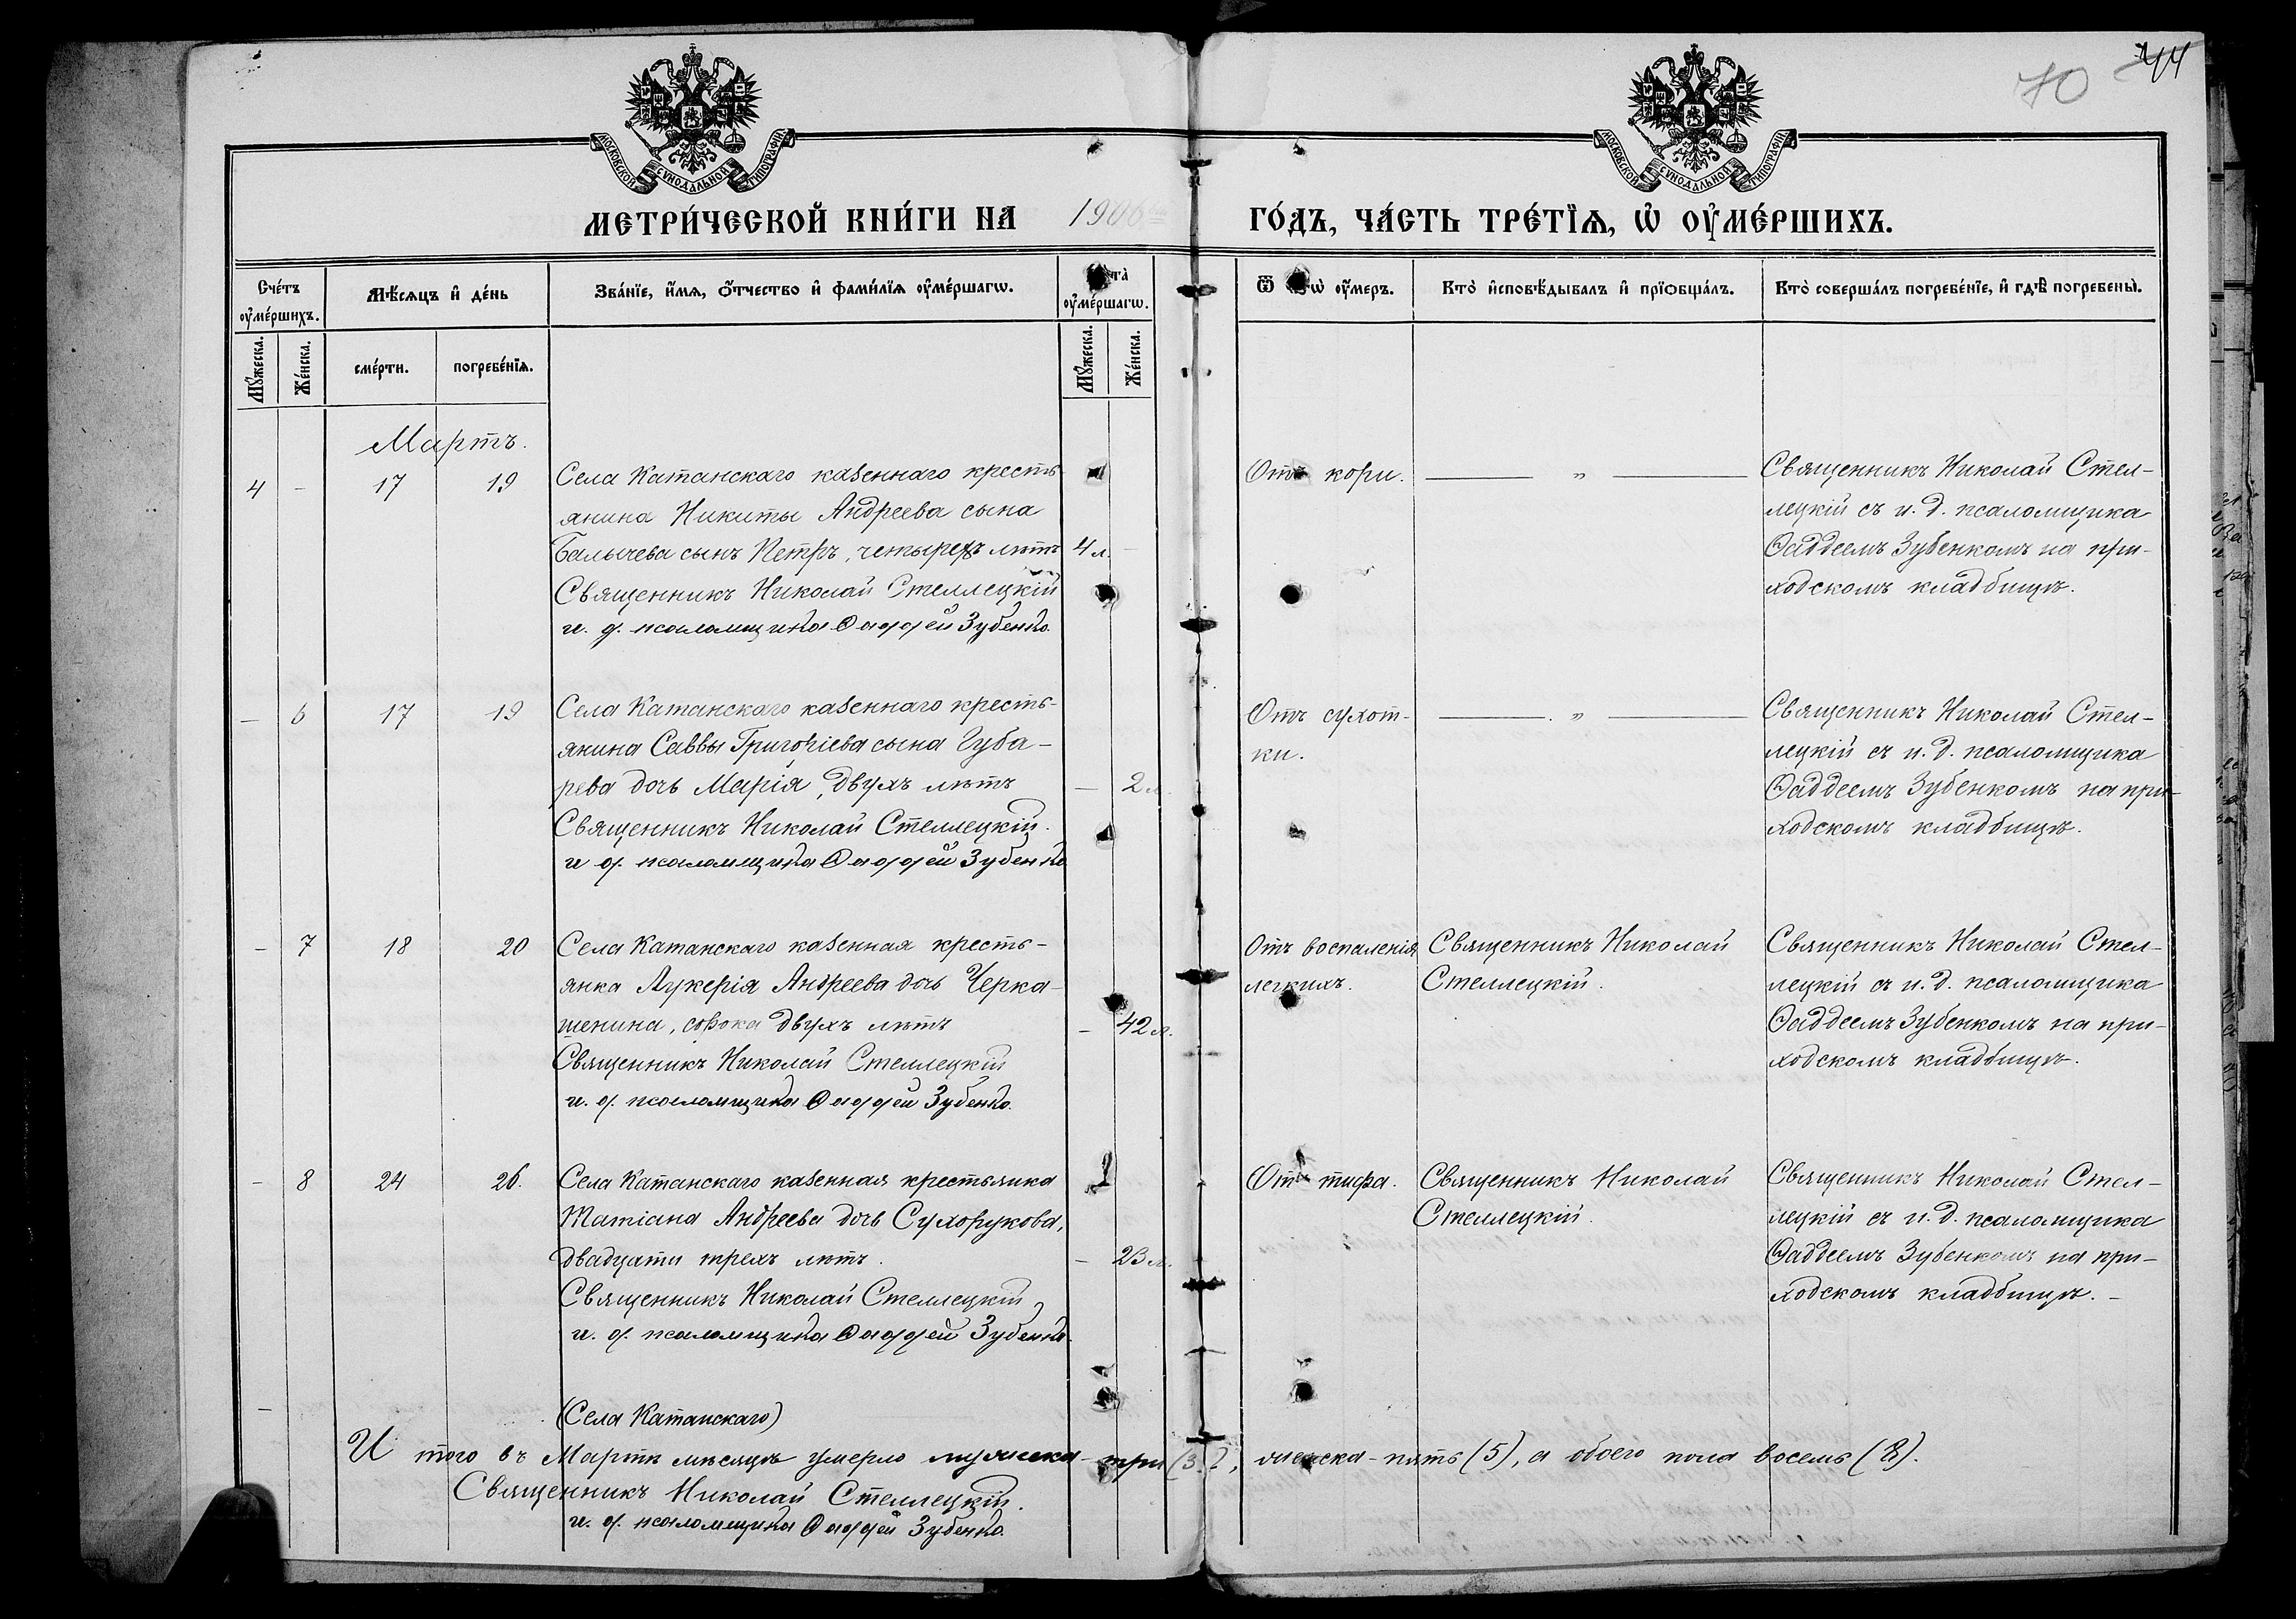 70 44
МОСКОВСКОЙ СѴНОДАЛЬНОЙ ТИПОГРАФІИ
МОСКОВСКОЙ СѴНОДАЛЬНОЙ ТИПОГРАФІИ
МЕТРИ́ЧЕСКОЙ КНИ́ГИ НА 1906 ГО́ДЪ, ЧА́СТЬ ТРЕ́ТЇѦ, Ѡ҆ ОУ҆МЕ́РШИХЪ.
Счéтъ оу҆мéршихъ.
Мѣ́сѧцъ и҆ дéнь
Звáнїе, и҆́мѧ, ѻ҆́тчество и҆ фами́лїѧ оу҆мéршагѡ.
оу҆мéршагѡ.
оу҆́меръ.
Ктò и҆сповѣ́дывалъ и҆ прїѡбщáлъ.
Ктò совершáлъ погребéнїе, и҆ гдѣ̀ погребены̀.
Мꙋ́жеска.
Жéнска.
смéрти.
погребéнїѧ.
Мꙋ́жеска.
Жéнска.
Мартъ.
4 - 17 19
Села Катанскаго казеннаго кресть-
янина Никиты Андреева сына
Балычева сынъ Петръ, четырехъ лѣтъ 4 л. -
Священникъ Николай Стеллецкій
и. д. псаломщика Ѳаддей Зубенко.
Отъ кори.
— „ —
Священникъ Николай Стел-
лецкій съ и. д. псаломщика
Ѳаддеемъ Зубенкомъ на при-
ходскомъ кладбищѣ.
- 6 17 19
Села Катанскаго казеннаго кресть-
янина Саввы Григоріева сына Губа-
рева дочь Марія, двухъ лѣтъ - 2 л.
Священникъ Николай Стеллецкій.
и д. псаломщика Ѳаддей Зубенко
Отъ сухот-
ки.
— „ —
Священникъ Николай Стел-
лецкій съ и. д. псаломщика
Ѳаддеемъ Зубенкомъ на при-
ходскомъ кладбищѣ.
- 7 18 20
Села Катанскаго казенная кресть-
янка Лукерія Андреева дочь Черка-
шенина, сорока двухъ лѣтъ - 42 л.
Священникъ Николай Стеллецкій
и. д. псаломщика Ѳаддей Зубенко.
Отъ воспаленія
легкихъ.
Священникъ Николай
Стеллецкій.
Священникъ Николай Стел-
лецкій съ и. д. псаломщика
Ѳаддеемъ Зубенкомъ на при-
ходскомъ кладбищѣ.
- 8 24 26.
Села Катанскаго казенная крестьянка
Татіана Андреева дочь Сухорукова,
двадцати трехъ лѣтъ. - 23 л.
Священникъ Николай Стеллецкій
и. д. псаломщика Ѳаддей Зубенко.
Отъ тифа.
Священникъ Николай
Стеллецкій.
Священникъ Николай Стел-
лецкій съ и. д. псаломщика
Ѳаддеемъ Зубенкомъ на при-
ходскомъ кладбищѣ. -
(Села Катанскаго)
И того въ Мартѣ мѣсяцѣ умерло мужеска - три (3), женска - пять (5), а обоего пола восемь (8).
Священникъ Николай Стеллецкій.
и. д. псаломщика Ѳаддей Зубенко.